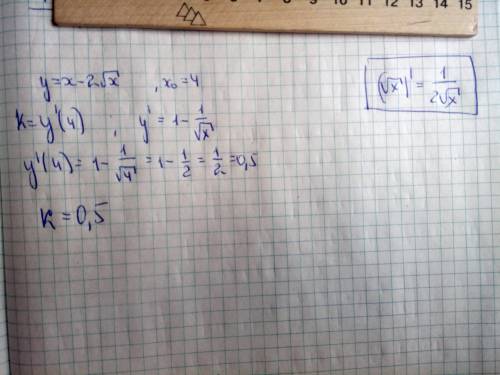 7 8 9 10 11 12 13 14 15
y = x - 2√x , x₀ = 4
(√x)' = 1/(2√x)
k = y'(4) , y' = 1 - 1/√x
y'(4) = 1 - 1/√4 = 1 - 1/2 = 1/2 = 0,5
k = 0,5